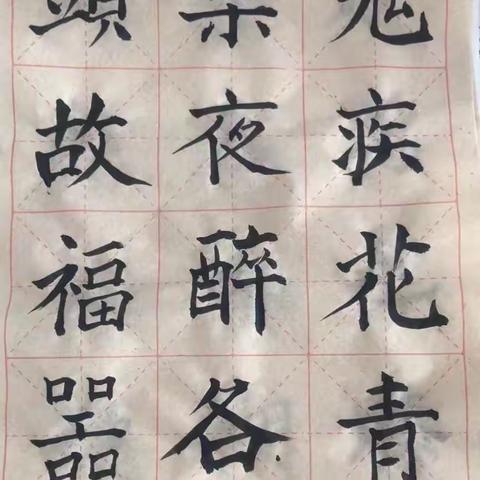 頭
故 夜 疾
福 醉 花
噐 各 青